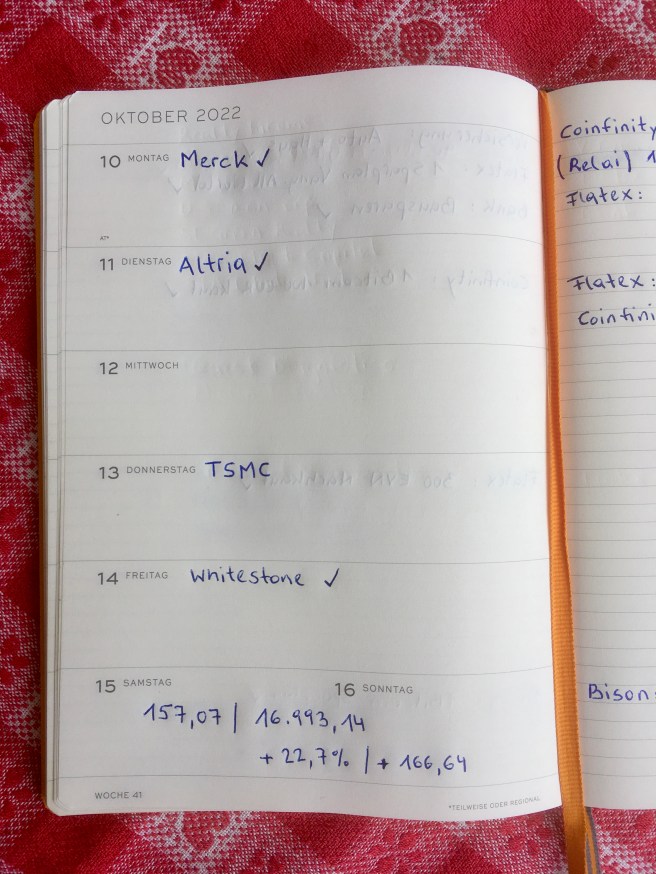 OKTOBER 2022
10 MONTAG Merck ✓
AT*
11 DIENSTAG Altria ✓
12 MITTWOCH
13 DONNERSTAG TSMC
14 FREITAG Whitestone ✓
15 SAMSTAG 16 SONNTAG
157,07 | 16.993,14
+ 22,7% | + 166,64
WOCHE 41
*TEILWEISE ODER REGIONAL
Coinfinity
(Relai) 1
Flatex:
Flatex:
Coinfini
Bison: